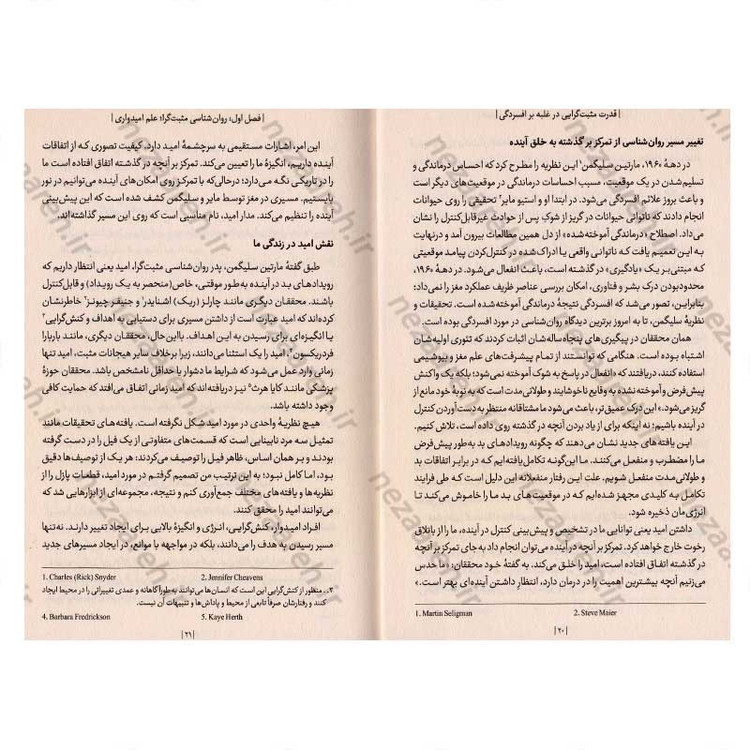 | قدرت مثبت‌گرایی در غلبه بر افسردگی |
تغییر مسیر روان‌شناسی از تمرکز بر گذشته به خلق آینده
در دههٔ ۱۹۶۰، مارتین سلیگمن¹ این نظریه را مطرح کرد که احساس درماندگی و
تسلیم‌شدن در یک موقعیت، سبب احساسات درماندگی در موقعیت‌های دیگر است
و باعث بروز علائم افسردگی می‌شود. در ابتدا او و استیو مایر² تحقیقی را روی حیوانات
انجام دادند که ناتوانی حیوانات در گریز از شوک پس از حوادث غیرقابل‌کنترل را نشان
می‌داد. اصطلاح «درماندگی آموخته‌شده» از دل همین مطالعات بیرون آمد و درنهایت
به این تعمیم یافت که ناتوانی واقعی یا ادراک‌شده در کنترل‌کردن پیامد موقعیتی
که مبتنی بر یک «یادگیری» در گذشته است، باعث انفعال می‌شود. در دههٔ ۱۹۶۰،
محدودبودن درک بشر و فناوری، امکان بررسی عناصر ظریف عملکرد مغز را نمی‌داد؛
بنابراین، تصور می‌شد که افسردگی نتیجهٔ درماندگی آموخته‌شده است. تحقیقات و
نظریهٔ سلیگمن، تا به امروز برترین دیدگاه روان‌شناسی در مورد افسردگی بوده است.
همان محققان در پیگیری‌های پنجاه‌ساله‌شان اثبات کردند که تئوری اولیه‌شان
اشتباه بوده است. هنگامی که توانستند از تمام پیشرفت‌های علم مغز و بیوشیمی
استفاده کنند، دریافتند که «انفعال در پاسخ به شوک آموخته نمی‌شود؛ بلکه یک واکنش
پیش‌فرض و آموخته نشده به وقایع ناخوشایند و طولانی‌مدت است که به نوبهٔ خود مانع از
گریز می‌شود.» این درک عمیق‌تر، باعث می‌شود ما مشتاقانه منتظر به‌دست‌آوردن کنترل
در آینده باشیم؛ نه اینکه برای از یاد بردن آنچه در گذشته روی داده است، تلاش کنیم.
این یافته‌های جدید نشان می‌دهند که چگونه رویدادهای بد به‌طور پیش‌فرض
ما را مضطرب و منفعل می‌کنند. ما این‌گونه تکامل یافته‌ایم که در برابر اتفاقات بد
و طولانی‌مدت منفعل شویم. علت این رفتار منفعلانه این دلیل است که طی فرایند
تکامل به کلیدی مجهز شده‌ایم که در موقعیت‌های بد ما را خاموش می‌کند تا
انرژی‌مان ذخیره شود.
داشتن امید یعنی توانایی ما در تشخیص و پیش‌بینی کنترل در آینده، ما را از باتلاق
رخوت خارج خواهد کرد. تمرکز بر آنچه در آینده می‌توان انجام داد به جای تمرکز بر آنچه
در گذشته اتفاق افتاده است، امید را خلق می‌کند. به گفتهٔ خود محققان: «ما حدس
می‌زنیم آنچه بیشترین اهمیت را در درمان دارد، انتظارِ داشتن آینده‌ای بهتر است.»
1. Martin Seligman 2. Steve Maier
| ۲۰ |
| فصل اول: روان‌شناسی مثبت‌گرا؛ علم امیدواری |
این امر، اشارات مستقیمی به سرچشمهٔ امید دارد. کیفیت تصوری که از اتفاقات
آینده داریم، انگیزهٔ ما را تعیین می‌کند. تمرکز بر آنچه در گذشته اتفاق افتاده است ما
را در تاریکی نگه می‌دارد؛ درحالی‌که با تمرکز روی امکان‌های آینده می‌توانیم در نور
بایستیم. مسیری در مغز توسط مایر و سلیگمن کشف شده است که این پیش‌بینی
آینده را تنظیم می‌کند. مدار امید، نام مناسبی است که روی این مسیر گذاشته‌اند.
نقش امید در زندگی ما
طبق گفتهٔ مارتین سلیگمن، پدر روان‌شناسی مثبت‌گرا، امید یعنی انتظار داریم که
رویدادهای بد در آینده به‌طور موقتی، خاص (منحصر به یک رویداد) و قابل‌کنترل
باشند. محققان دیگری مانند چارلز (ریک) اسنایدر¹ و جنیفر چیونز² خاطرنشان
کرده‌اند که امید عبارت است از داشتن مسیری برای دستیابی به اهداف و کنش‌گرایی³
یا انگیزه‌ای برای رسیدن به این اهداف. بااین‌حال، محققان دیگری، مانند باربارا
فردریکسون⁴، امید را یک استثنا می‌دانند، زیرا برخلاف سایر هیجانات مثبت، امید تنها
زمانی وارد عمل می‌شود که شرایط ما دشوار یا حداقل نامشخص باشد. محققان حوزهٔ
پزشکی مانند کایا هرث⁵ نیز دریافته‌اند که امید زمانی اتفاق می‌افتد که حمایت کافی
وجود داشته باشد.
هیچ نظریهٔ واحدی در مورد امید شکل نگرفته است. یافته‌های تحقیقات مانند
تمثیل سه مرد نابینایی است که قسمت‌های متفاوتی از یک فیل را در دست گرفته
بودند و بر همان اساس، ظاهر فیل را توصیف می‌کردند: هر یک از توصیف‌ها دقیق
بود، اما کامل نبود؛ به این ترتیب من تصمیم گرفتم در مورد امید، قطعات پازل را از
نظریه‌ها و یافته‌های مختلف جمع‌آوری کنم و نتیجه، مجموعه‌ای از ابزارهایی شد که
می‌توانند امید را محقق کنند.
افراد امیدوار، کنش‌گرایی، انرژی و انگیزهٔ بالایی برای ایجاد تغییر دارند. نه‌تنها
مسیر رسیدن به هدف را می‌دانند، بلکه در مواجهه با موانع، در ایجاد مسیرهای جدید
1. Charles (Rick) Snyder 2. Jennifer Cheavens
۳. منظور از کنش‌گرایی این است که انسان‌ها می‌توانند به‌طور آگاهانه و عمدی تغییراتی را در محیط ایجاد
کنند و رفتارشان صرفاً تابعی از محیط و پاداش‌ها و تنبیهات آن نیست.
4. Barbara Fredrickson 5. Kaye Herth
| ۲۱ |
nezareh.ir